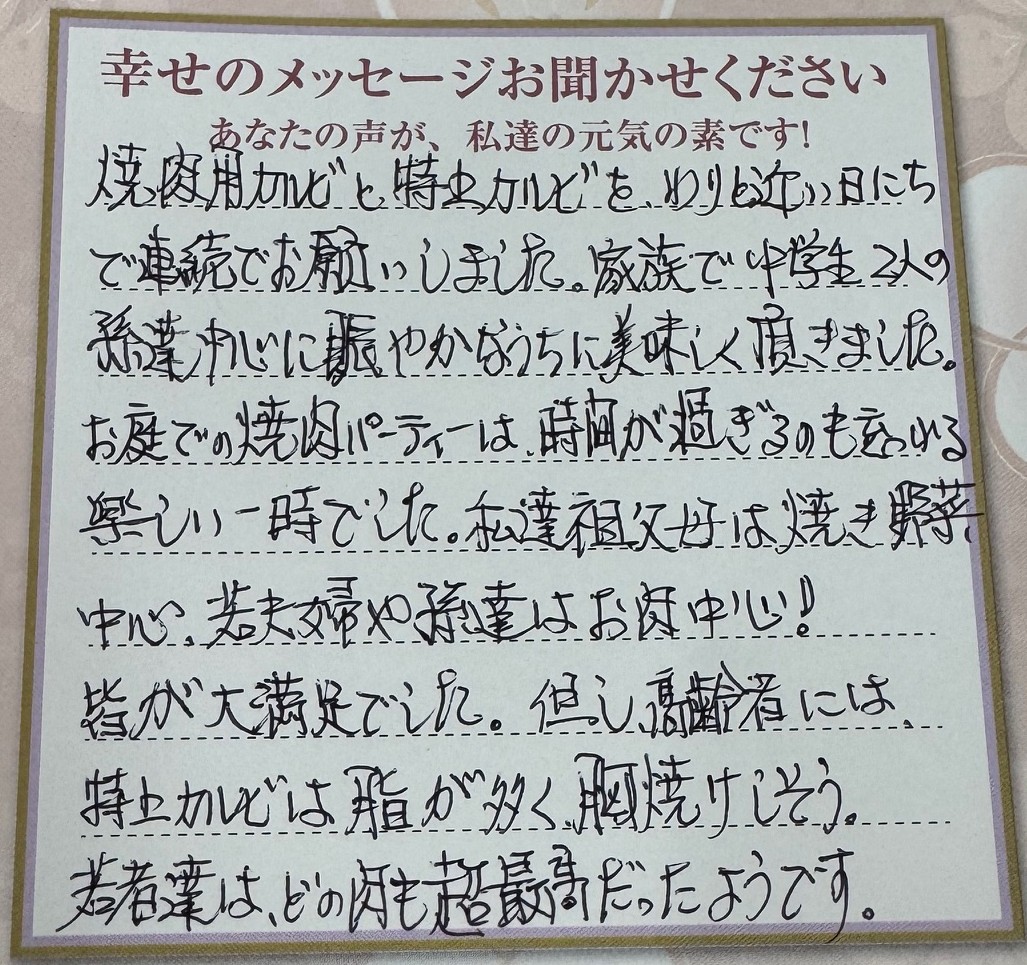 幸せのメッセージお聞かせください
あなたの声が、私達の元気の素です!
焼肉用カルビと、特上カルビを、わりと近い日にち
で連続でお願いしました。家族で中学生2人の
孫達中心に賑やかなうちに美味しく頂きました。
お庭での焼肉パーティーは、時間が過ぎるのも忘れる
楽しい一時でした。私達祖父母は焼き野菜
中心、若夫婦や孫達はお肉中心!
皆が大満足でした。但し、高齢者には、
特上カルビは脂が多く、胸焼けしそう。
若者達は、どの肉も超最高だったようです。